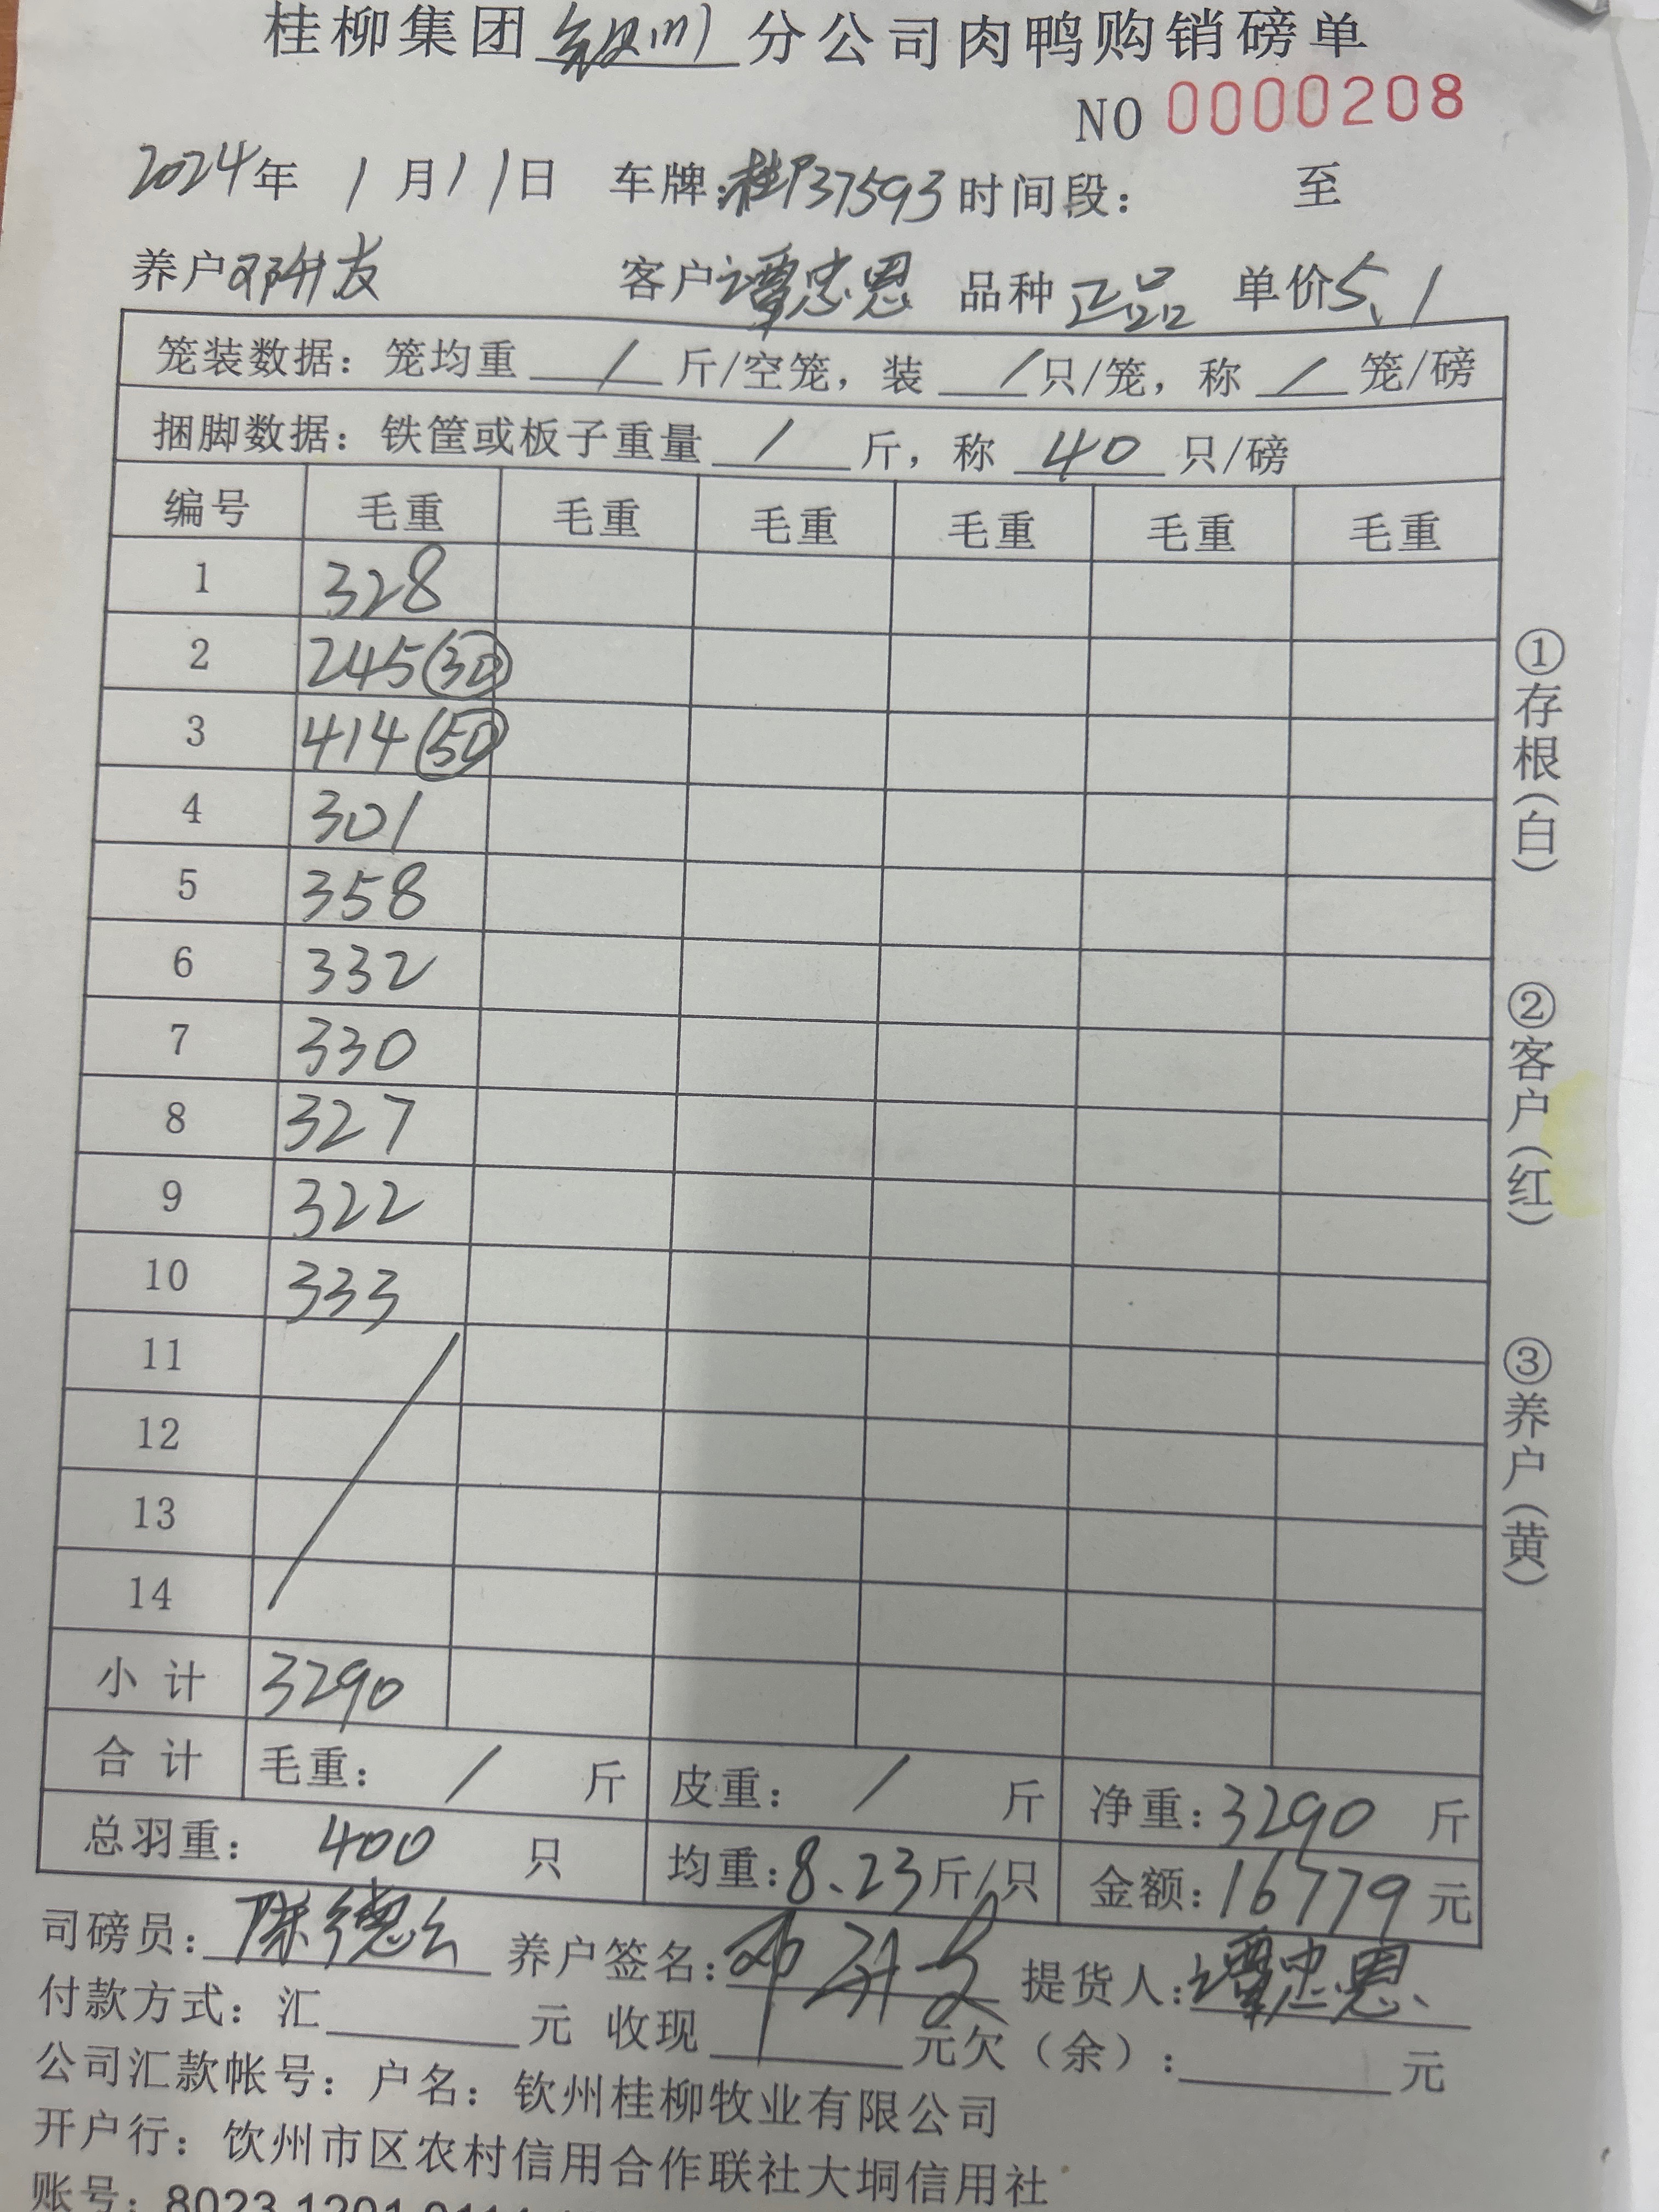 桂柳集团钦州分公司肉鸭购销磅单
NO 0000208
2024年 1月11日 车牌:桂P37593 时间段: 至
养户 邓升友 客户 谭忠恩 品种 正品 单价5.1
笼装数据: 笼均重 / 斤/空笼, 装 / 只/笼, 称 / 笼/磅
捆脚数据: 铁筐或板子重量 / 斤, 称 40 只/磅
编号 毛重 毛重 毛重 毛重 毛重 毛重
1 328
2 245 (30)
3 414 (50)
4 301
5 358
6 332
7 330
8 327
9 322
10 333
11
12
13
14
小计 3290
合计 毛重: / 斤 皮重: / 斤 净重: 3290 斤
总羽重: 400 只 均重: 8.23 斤/只 金额: 16779 元
司磅员: 陈德 养户签名: 邓升友 提货人: 谭忠恩
付款方式: 汇 元 收现 元欠(余): 元
公司汇款帐号: 户名: 钦州桂柳牧业有限公司
开户行: 钦州市区农村信用合作联社大垌信用社
账号: 8023 1201 0114
①存根(白)
②客户(红)
③养户(黄)